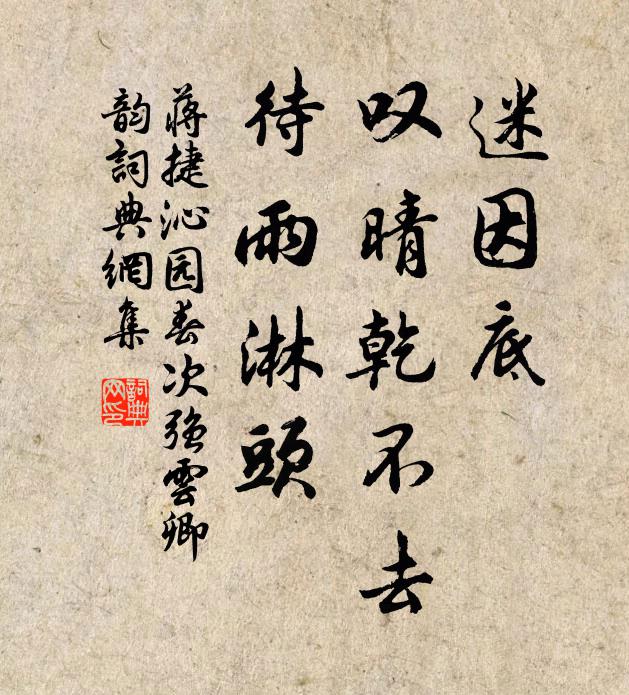 迷因底
叹晴乾不去
待雨淋頭
蒋捷沁园春次强雲卿
韵詞典網集
詞典
网印